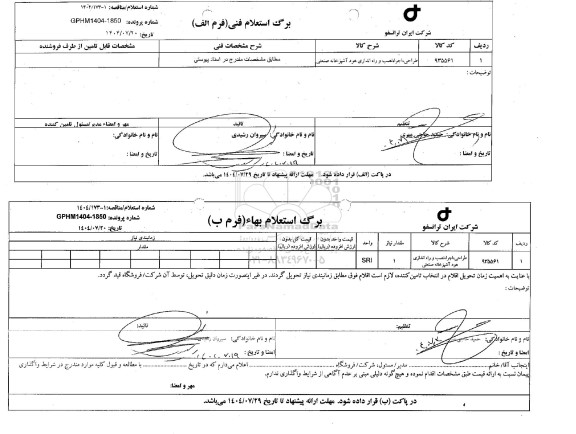 شماره استعلام/مناقصه: ۱-۱۴۰۴/۱۷۳
برگ استعلام فنی(فرم الف)
شماره پرونده: GPHM1404-1850
تاریخ: ۱۴۰۴/۰۷/۲۰
شرکت ایران ترانسفو
ردیف کد کالا شرح کالا شرح مشخصات فنی مشخصات قابل تامین از طرف فروشنده
۱ ۹۳۵۵۶۱ طراحی،اجرا،نصب و راه اندازی هود آشپزخانه صنعتی مطابق مشخصات مندرج در اسناد پیوستی
توضیحات:
تنظیم: تائید: مهر و امضاء مدیر/مسئول تامین کننده
نام و نام خانوادگی: نام و نام خانوادگی: سیروان رشیدی نام و نام خانوادگی:
تاریخ و امضا : تاریخ و امضا : تاریخ و امضا :
در پاکت (الف) قرار داده شود. مهلت ارائه پیشنهاد تا تاریخ ۱۴۰۴/۰۷/۲۹ می‌باشد.
شماره استعلام/مناقصه: ۱-۱۴۰۴/۱۷۳
برگ استعلام بهاء(فرم ب)
شماره پرونده: GPHM1404-1850
تاریخ: ۱۴۰۴/۰۷/۲۰
شرکت ایران ترانسفو
ردیف کد کالا شرح کالا مقدار نیاز واحد قیمت واحد بدون ارزش افزوده (ریال) قیمت کل بدون ارزش افزوده (ریال) زمانبندی نیاز
مقدار
۱ ۹۳۵۵۶۱ طراحی،اجرا،نصب و راه اندازی هود آشپزخانه صنعتی ۱ SRI
با عنایت به اهمیت زمان تحویل اقلام در انتخاب تامین کننده، لازم است اقلام فوق مطابق زمانبندی نیاز تحویل گردند. در غیر اینصورت زمان دقیق تحویل، توسط آن شرکت/فروشگاه قید گردد.
توضیحات :
تنظیم: تائید:
نام و نام خانوادگی: نام و نام خانوادگی: سیروان
تاریخ و امضا : تاریخ و امضا :
اینجانب آقا/خانم مدیر/مسئول، شرکت/فروشگاه اعلام می‌دارم که در تاریخ با مطالعه و قبول کلیه موارد مندرج در شرایط واگذاری
پیمان نسبت به ارائه قیمت طبق مشخصات اقدام نموده و هیچ‌گونه دلیلی مبنی بر عدم آگاهی از شرایط واگذاری ندارم.
مهر و امضا:
در پاکت (ب) قرار داده شود. مهلت ارائه پیشنهاد تا تاریخ ۱۴۰۴/۰۷/۲۹ می‌باشد.